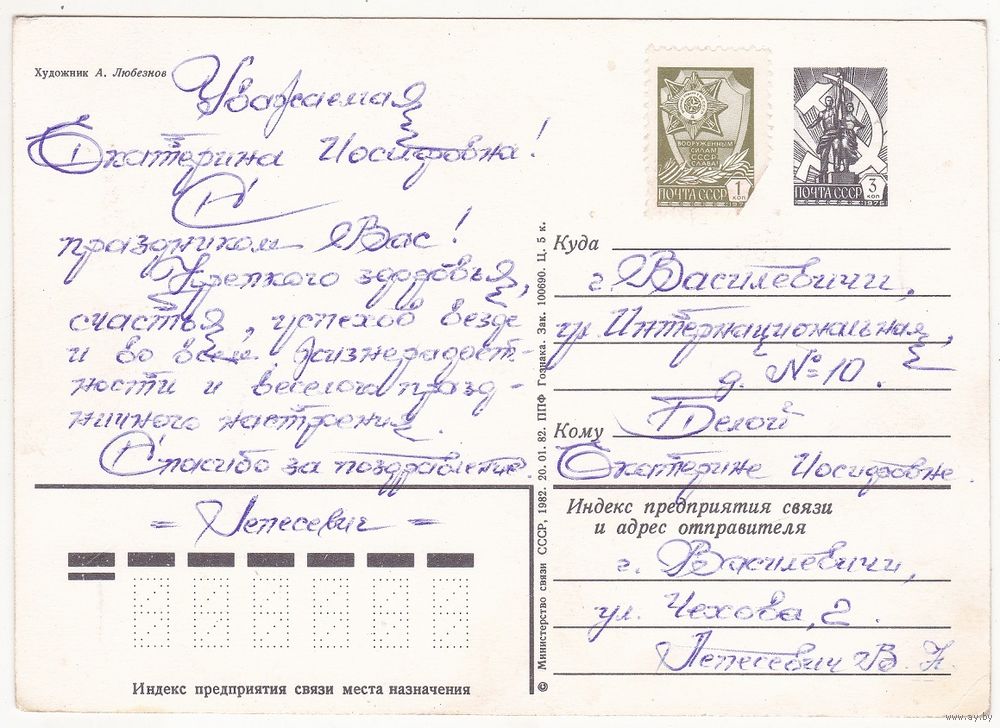 Художник А. Любезнов
Уважаемая
Екатерина Иосифовна!
С
праздником Вас!
Крепкого здоровья,
счастья, успехов везде
и во всем. Жизнерадост-
ности и веселого празд-
ничного настроения.
Спасибо за поздравление.
= Лепесевич =
Индекс предприятия связи места назначения
© Министерство связи СССР, 1982. 20. 01. 82. ППФ Гознака. Зак. 100690. Ц. 5 к.
ВООРУЖЕННЫМ
СИЛАМ
СССР
СЛАВА!
ПОЧТА СССР 1 КОП
ПОЧТА СССР 3 КОП
1976
Куда
г. Василевичи,
ул. Интернациональная,
д. №10.
Кому Белой
Екатерине Иосифовне.
Индекс предприятия связи
и адрес отправителя
г. Василевичи,
ул. Чехова, 2.
Лепесевич В. К.
www.ay.by